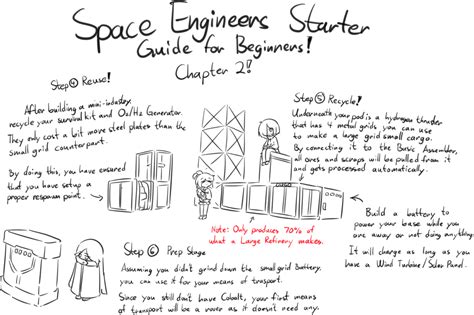 Space Engineers Starter
Guide for Beginners!
Chapter 2!
Step④ Reuse!
After building a mini-industry,
recycle your survival kit and O₂/H₂ Generator.
They only cost a bit more steel plates than the
small grid counterpart.
By doing this, you have ensured
that you have setup a
proper respawn point.
Step⑤ Recycle!
Underneath your pod is a hydrogen thruster
that has 4 metal grids you can use
to make a large grid small cargo.
By connecting it to the Basic Assembler,
all ores and scraps will be pulled from it
and gets processed automatically.
Note: Only produces 70% of
what a Large Refinery makes.
Build a battery to
power your base while you
are away or not doing anything.
It will charge as long as you
have a Wind Turbine/Solar Panel.
Step⑥ Prep Stage
Assuming you didn't grind down the small grid battery,
you can use it for your means of trasport.
Since you still don't have Cobalt, your first means
of transport will be a rover as it doesn't need any.